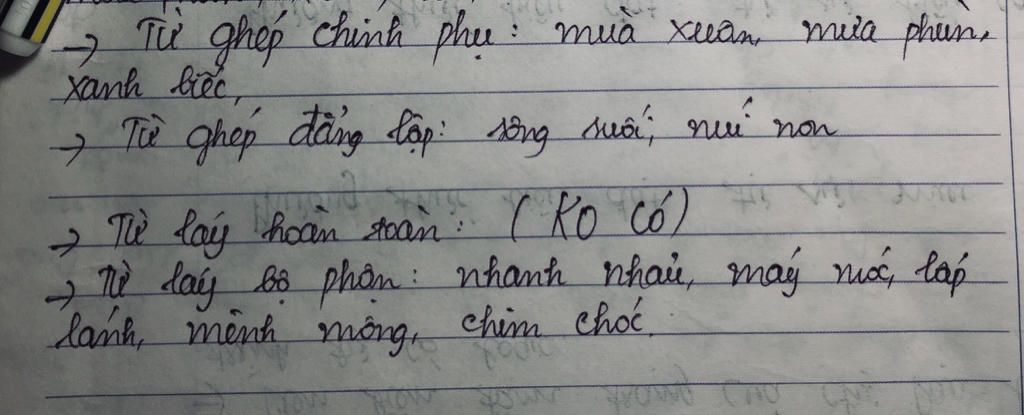 → Từ ghép chính phụ: mùa xuân, mưa phùn,
xanh biếc,
→ Từ ghép đẳng lập: sông suối, núi non
→ Từ láy hoàn toàn: (KO CÓ)
→ Từ láy bộ phận: nhanh nhảu, máy móc, lấp
lánh, mênh mông, chim chóc.